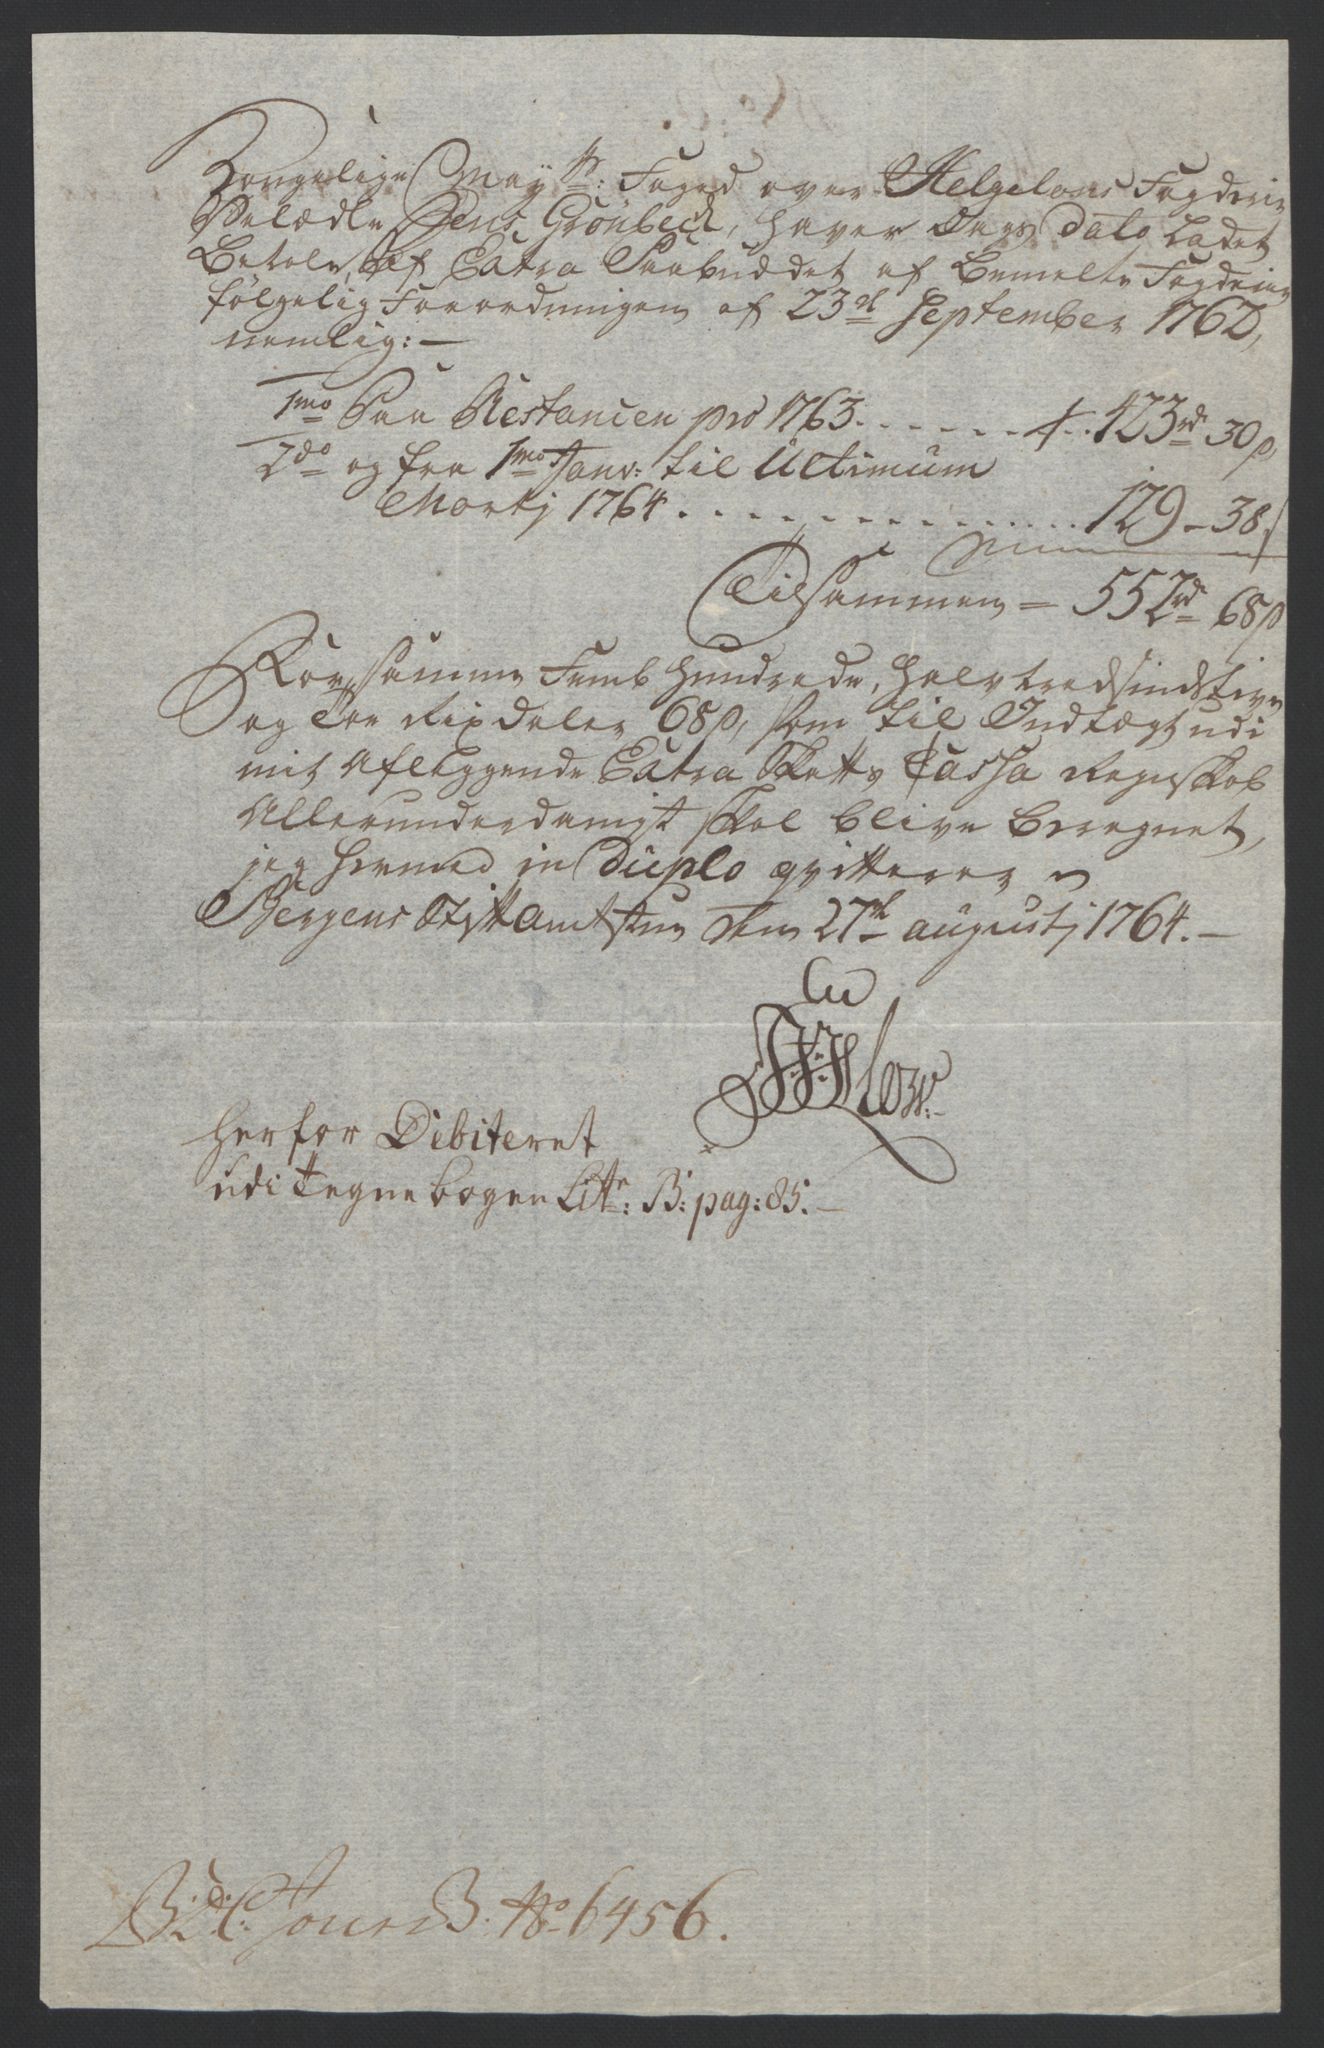 Kongelige May:sts Foged over Helgelans Fogderie
Velædle Jens Grönbeck, haver Dags Dato Ladet
Betale, af Extra Paabuddet af bemelte Fogderie
følgelig Forordningen af 23de September 1762,
nemlig: —
1mo Paa Restancen pro 1763 . . . . . . 423rd 30s,
2do og fra 1mo Janv: til Ultimum
Martij 1764 . . . . . . . . . . . . . . . 129 – 38s
Tilsammen = 552rd 68s
Hvor, samme Femb Hundrede, Halvtredsindstive
og Toe Rixdaler 68s, som til Indtægt udi
mit Aflæggende Extra Skatts Cassa Regnskab
Allerunderdanigst skal blive beregnet,
jeg hermed in Duplo qvitterer
Bergens Stiftamtstue den 27de augustj 1764. —
herfor Debiteret
udi Tegnebogen Litr: B: pag: 85. —
Jour B. No 6456.